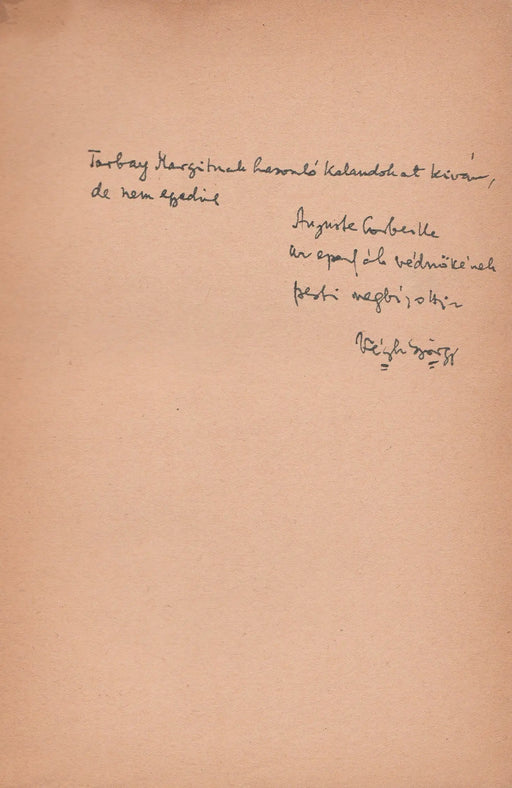 Tarbay Margitnak hasonló kalandokat kiván,
de nem egedül
Auguste Corbeille
az eperfák védnökének
pesti megbízottja
Végh György